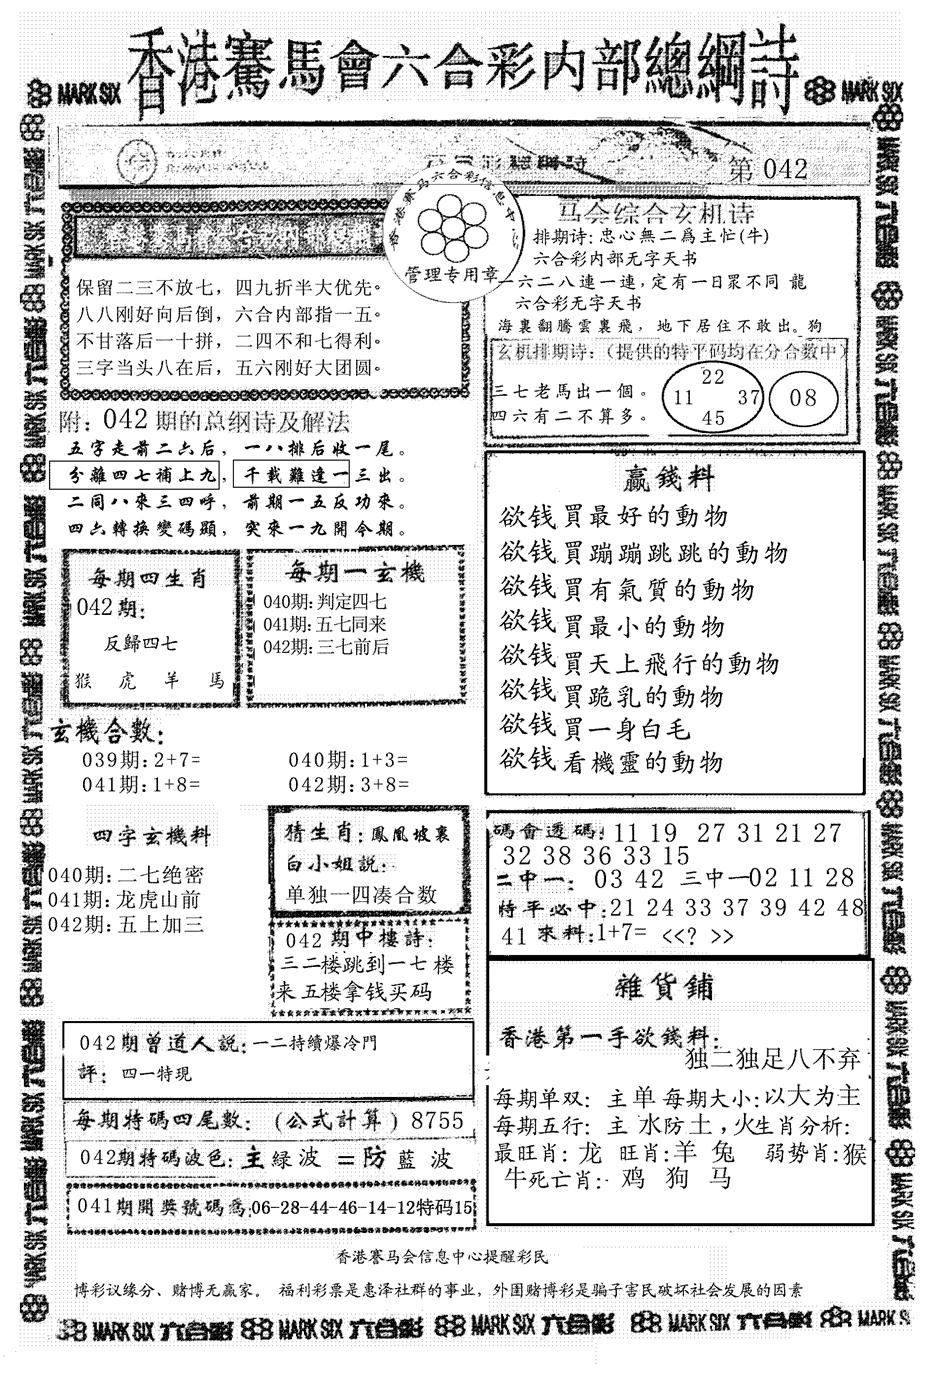 香港賽馬會六合彩内部總綱詩
MARK SIX
MARK SIX
第 042
香港赛马六合彩信息中心
管理专用章
保留二三不放七，四九折半大优先。
八八刚好向后倒，六合内部指一五。
不甘落后一十拼，二四不和七得利。
三字当头八在后，五六刚好大团圆。
马会综合玄机诗
排期诗：忠心無二爲主忙(牛)
六合彩内部无字天书
一六二八連一連，定有一日眾不同 龍
六合彩无字天书
海裏翻騰雲裏飛，地下居住不敢出。狗
玄机排期诗：（提供的特平码均在分合数中）
三七老馬出一個。
四六有二不算多。
22
11 37
45
08
附：042期的总纲诗及解法
五字走前二六后，一八排后收一尾。
分離四七補上九，千載難逢一三出。
二同八來三四呼，前期一五反功來。
四六轉换變碼顯，突來一九開今期。
每期四生肖
042期：
反歸四七
猴 虎 羊 馬
每期一玄機
040期：判定四七
041期：五七同来
042期：三七前后
赢錢料
欲钱買最好的動物
欲钱買蹦蹦跳跳的動物
欲钱買有氣質的動物
欲钱買最小的動物
欲钱買天上飛行的動物
欲钱買跪乳的動物
欲钱買一身白毛
欲钱看機靈的動物
玄機合數：
039期：2+7=
040期：1+3=
041期：1+8=
042期：3+8=
四字玄機料
040期：二七绝密
041期：龙虎山前
042期：五上加三
猜生肖：鳳凰坡裏
白小姐説：
单独一四凑合数
042期中樓詩：
三二楼跳到一七楼
来五楼拿钱买码
碼會透碼：11 19 27 31 21 27
32 38 36 33 15
二中一：03 42 三中一02 11 28
特平必中：21 24 33 37 39 42 48
41 來料：1+7= <<? >>
雜貨鋪
香港第一手欲錢料：
独二独足八不弃
每期单双：主单每期大小：以大为主
每期五行：主水防土，火生肖分析：
最旺肖：龙 旺肖：羊 兔 弱势肖：猴
牛死亡肖：鸡 狗 马
042期曾道人説：一二持續爆冷門
評：四一特現
每期特碼四尾數：(公式計算) 8755
042期特碼波色：主緑波＝防藍波
041期開獎號碼爲：06-28-44-46-14-12特码15
香港賽马会信息中心提醒彩民
博彩议缘分、赌博无赢家。 福利彩票是惠泽社群的事业，外围赌博彩是骗子害民破坏社会发展的因素
MARK SIX 六合彩 MARK SIX 六合彩 MARK SIX 六合彩 MARK SIX 六合彩 MARK SIX